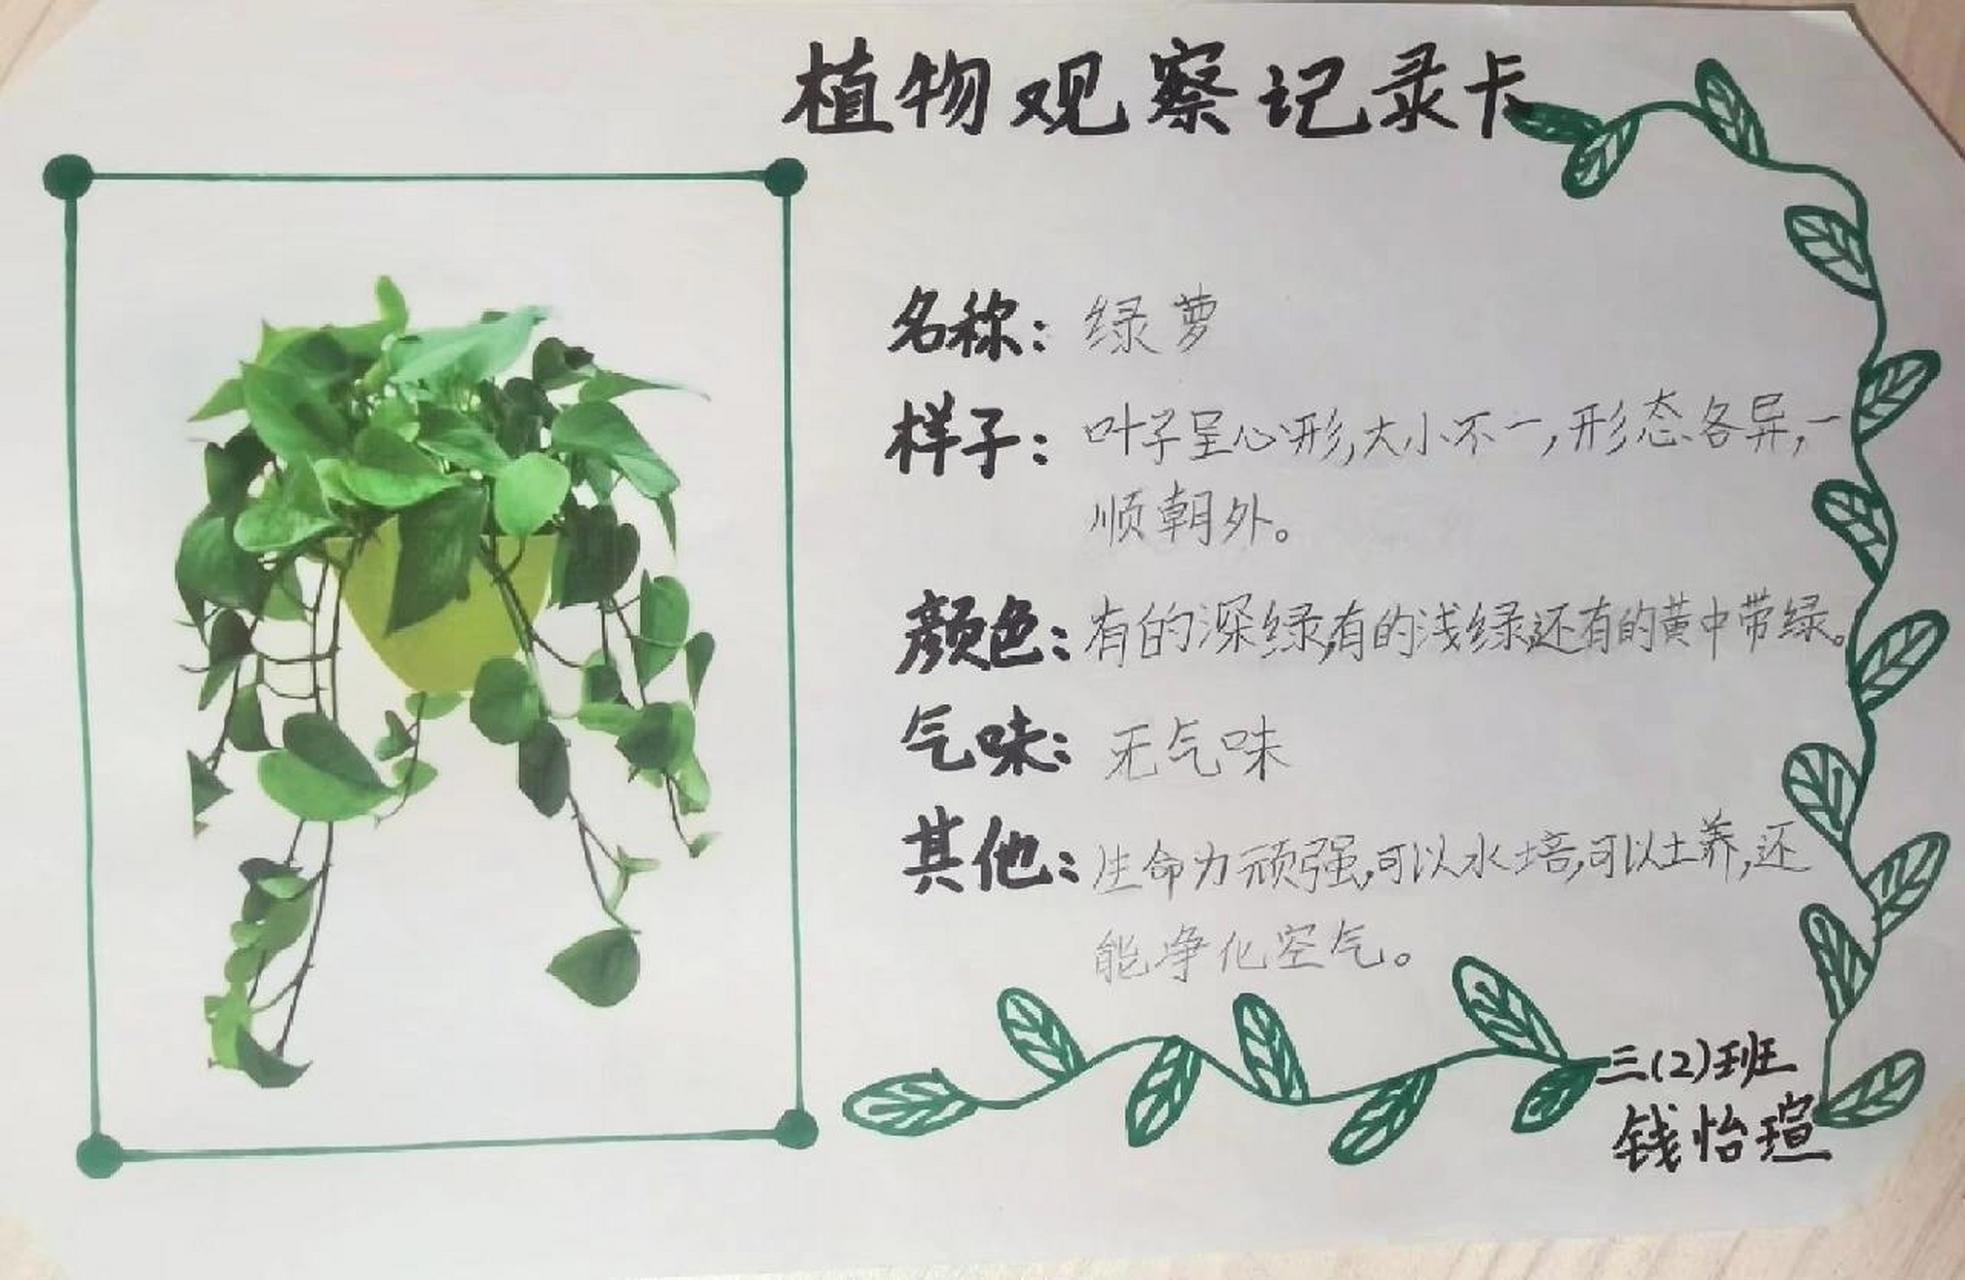 植物观察记录卡
名称：绿萝
样子：叶子呈心形,大小不一,形态各异,一
顺朝外。
颜色：有的深绿,有的浅绿,还有的黄中带绿。
气味：无气味
其他：生命力顽强,可以水培,可以土养,还
能净化空气。
三(2)班
钱怡瑄